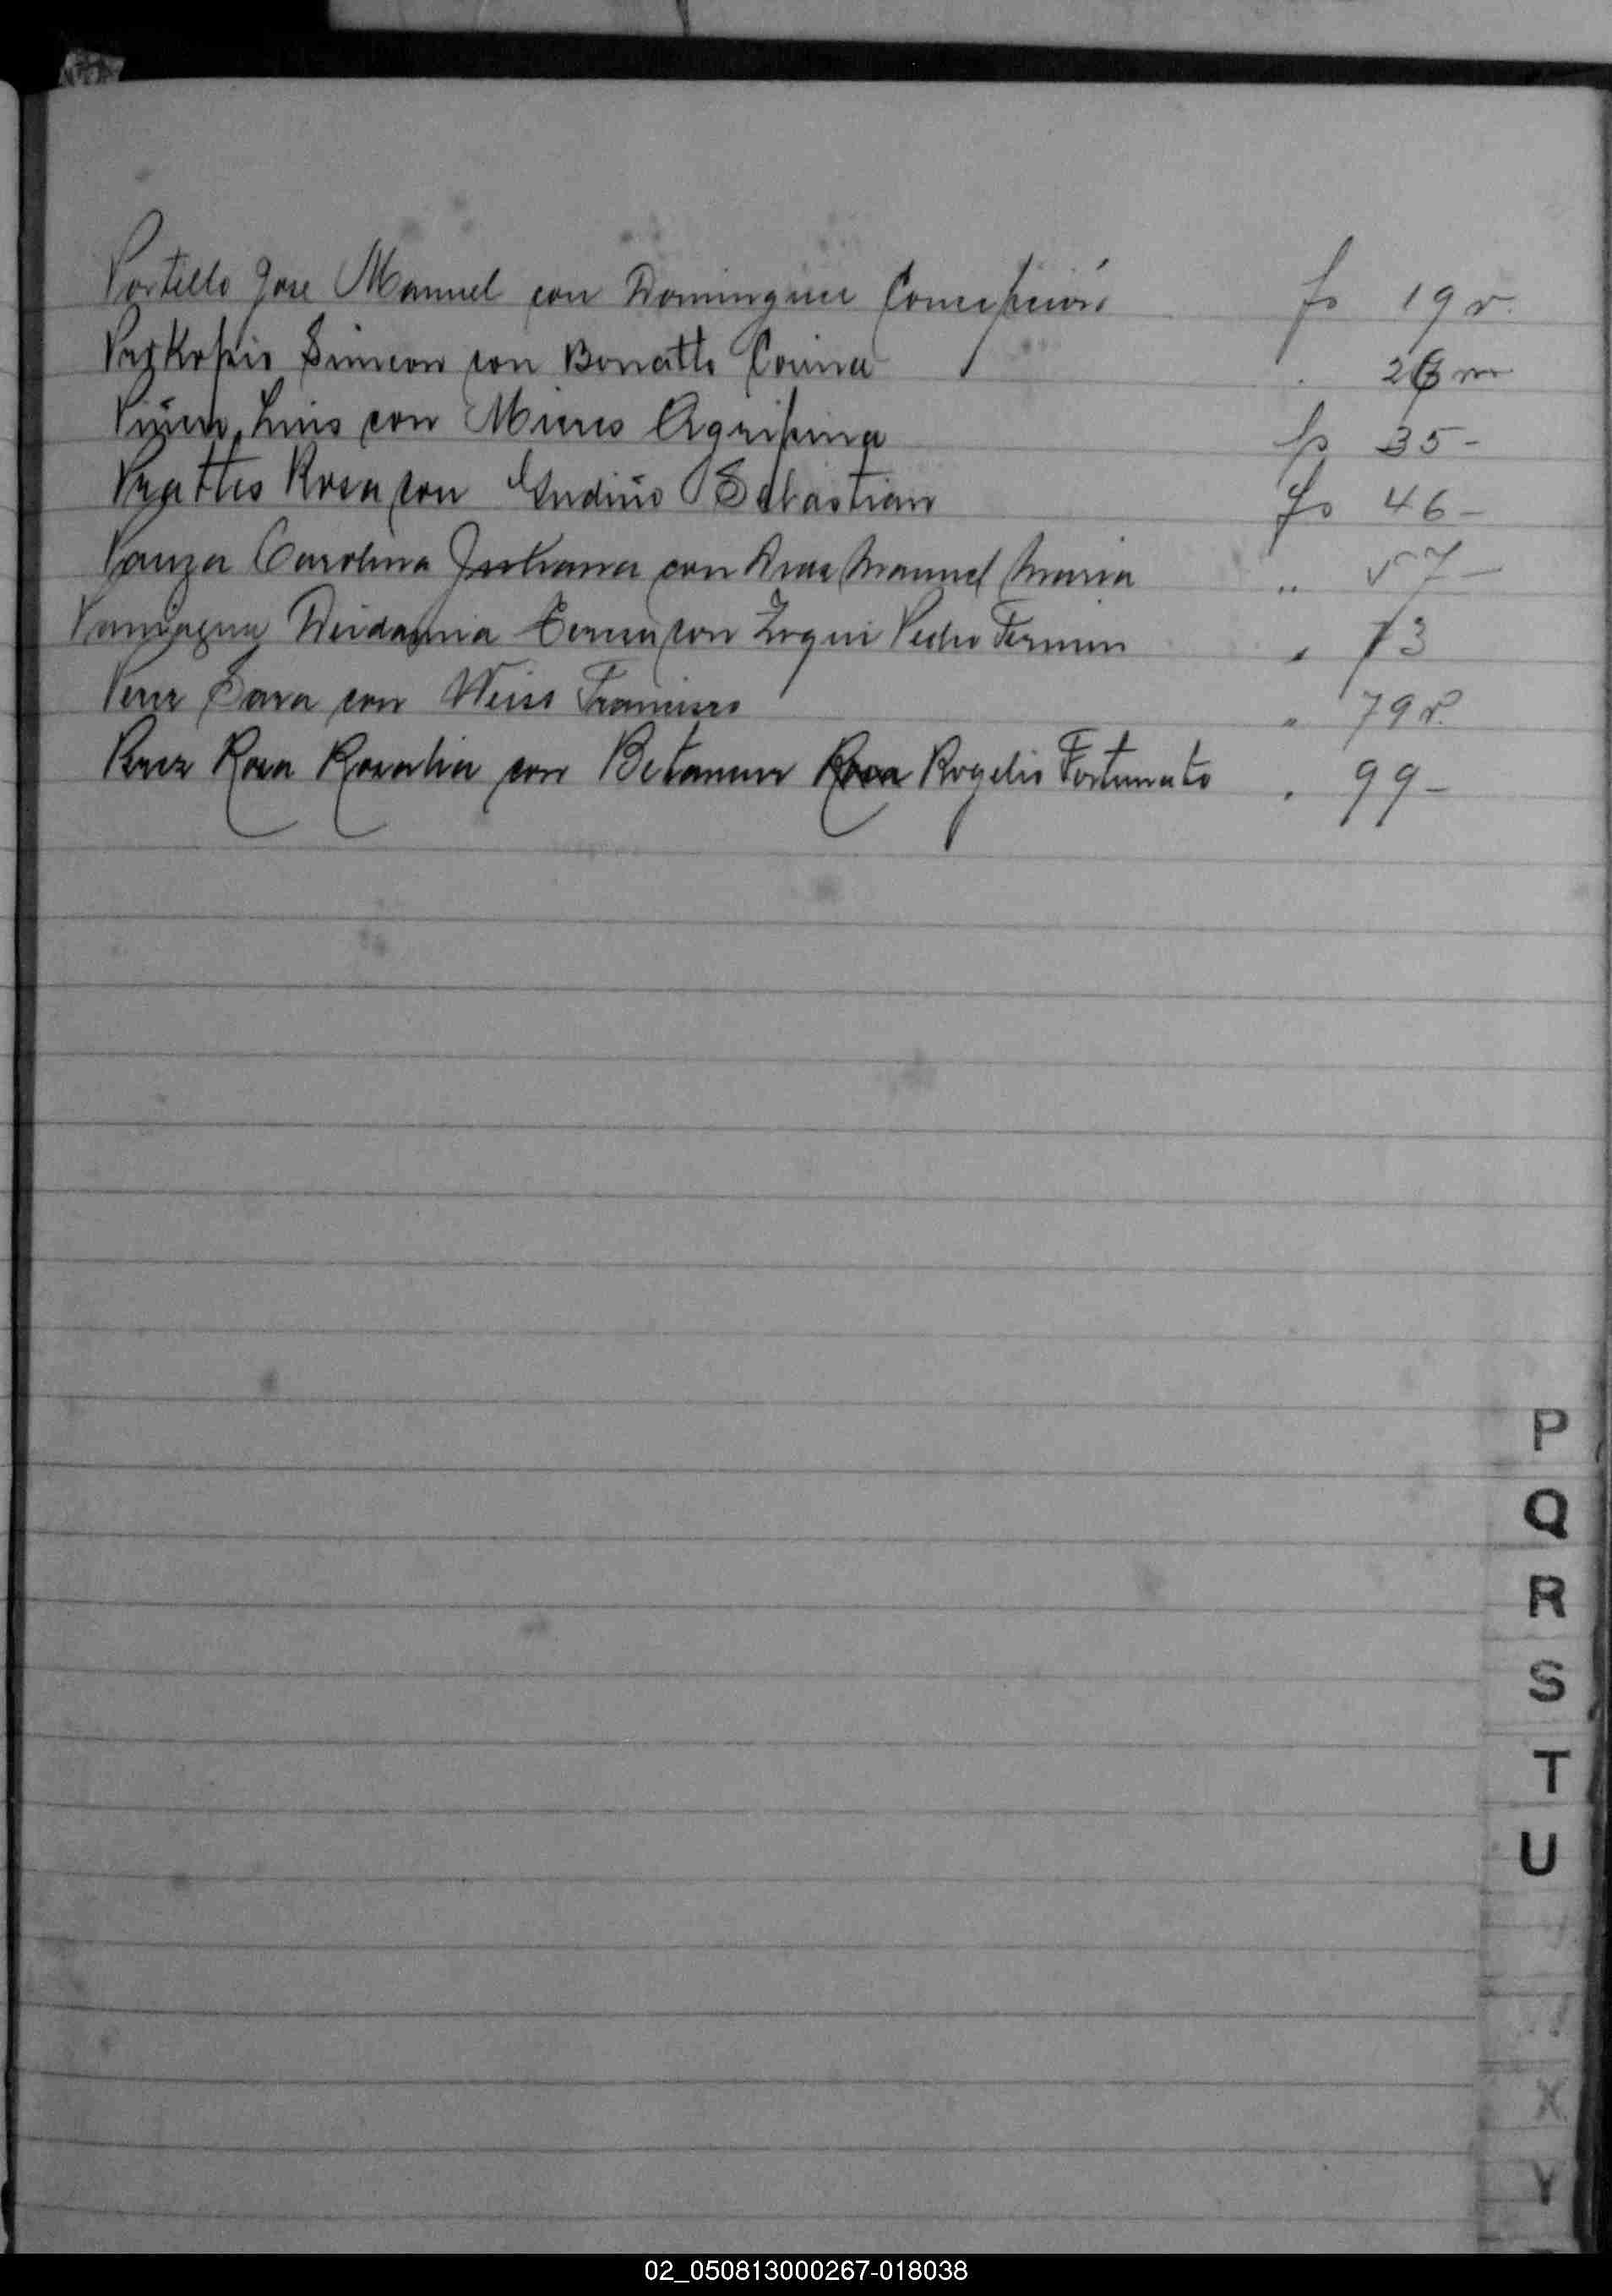 Portillo Jose Manuel con Dominguez Concepción fs 19 v.
Prokopio Simeon con Bonatto Corina . 26 m
Piñero Luis con Mieres Agripina fs 35 -
Prattes Rosa con Gudiño Sebastian fs 46 -
Panza Carolina Juliana con Diaz Manuel Maria " 57 -
Paniagua Deidamia Teresa con Zoqui Pedro Fermin " 73
Perez Sara con Weiss Francisco " 79 v.
Perez Rosa Rosalia con Betancur Rogelio Fortunato " 99 -
P
Q
R
S
T
U
X
Y
02_050813000267-018038